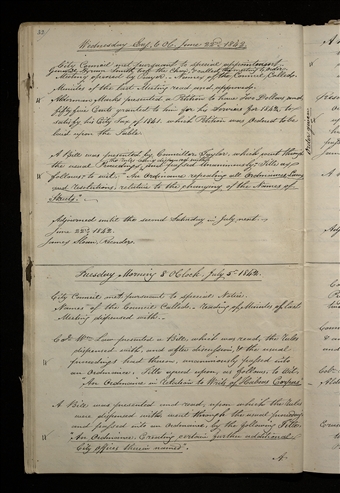 Wednesday Eveg. 6 O.C. June 22nd 1842
City Council met pursuant to special appointment
General Lyman Smith, took the Chair, & called the meeting to order
Meeting opened by Prayer. Names of the Council Called.
Minutes of the last Meeting read and approved.
Alderman Marks presented a Petition to have two Dollars and
fifty five Cents granted to him for his Services for 1842, to
satisfy his City Tax of 1841. which Petition was Ordered to be
laid upon the Table.
A Bill was presented by Councillor Taylor, which went through
the rules being dispensed with
the usual proceedings, and passed unanimously. Title as
follows to wit: "An Ordinance repealing all Ordinances, Laws
and resolutions, relative to the changing of the Names of
Streets."
Adjourned until the second Saturday in July next.
June 22nd 1842.
James Sloan, Recorder.
Tuesday Morning 8 OClock July 5th 1842.
City Council met, pursuant to special Notice.
Names of the Council Called. Reading of Minutes of last
Meeting dispensed with.
Col. Wm. Law presented a Bill, which was read, the rules
dispensed with, and after discussion, & the usual
proceedings had therein, unanimously passed into
an Ordinance. Title agreed upon, as follows, to wit.
"An Ordinance in relation to Writs of Habeas Corpus"
A Bill, was presented and read, upon which the rules
were dispensed with, went through the usual proceedings
and passed into an Ordinance, by the following Title.
"An Ordinance, Creating certain further additional
City offices therein named".
A.